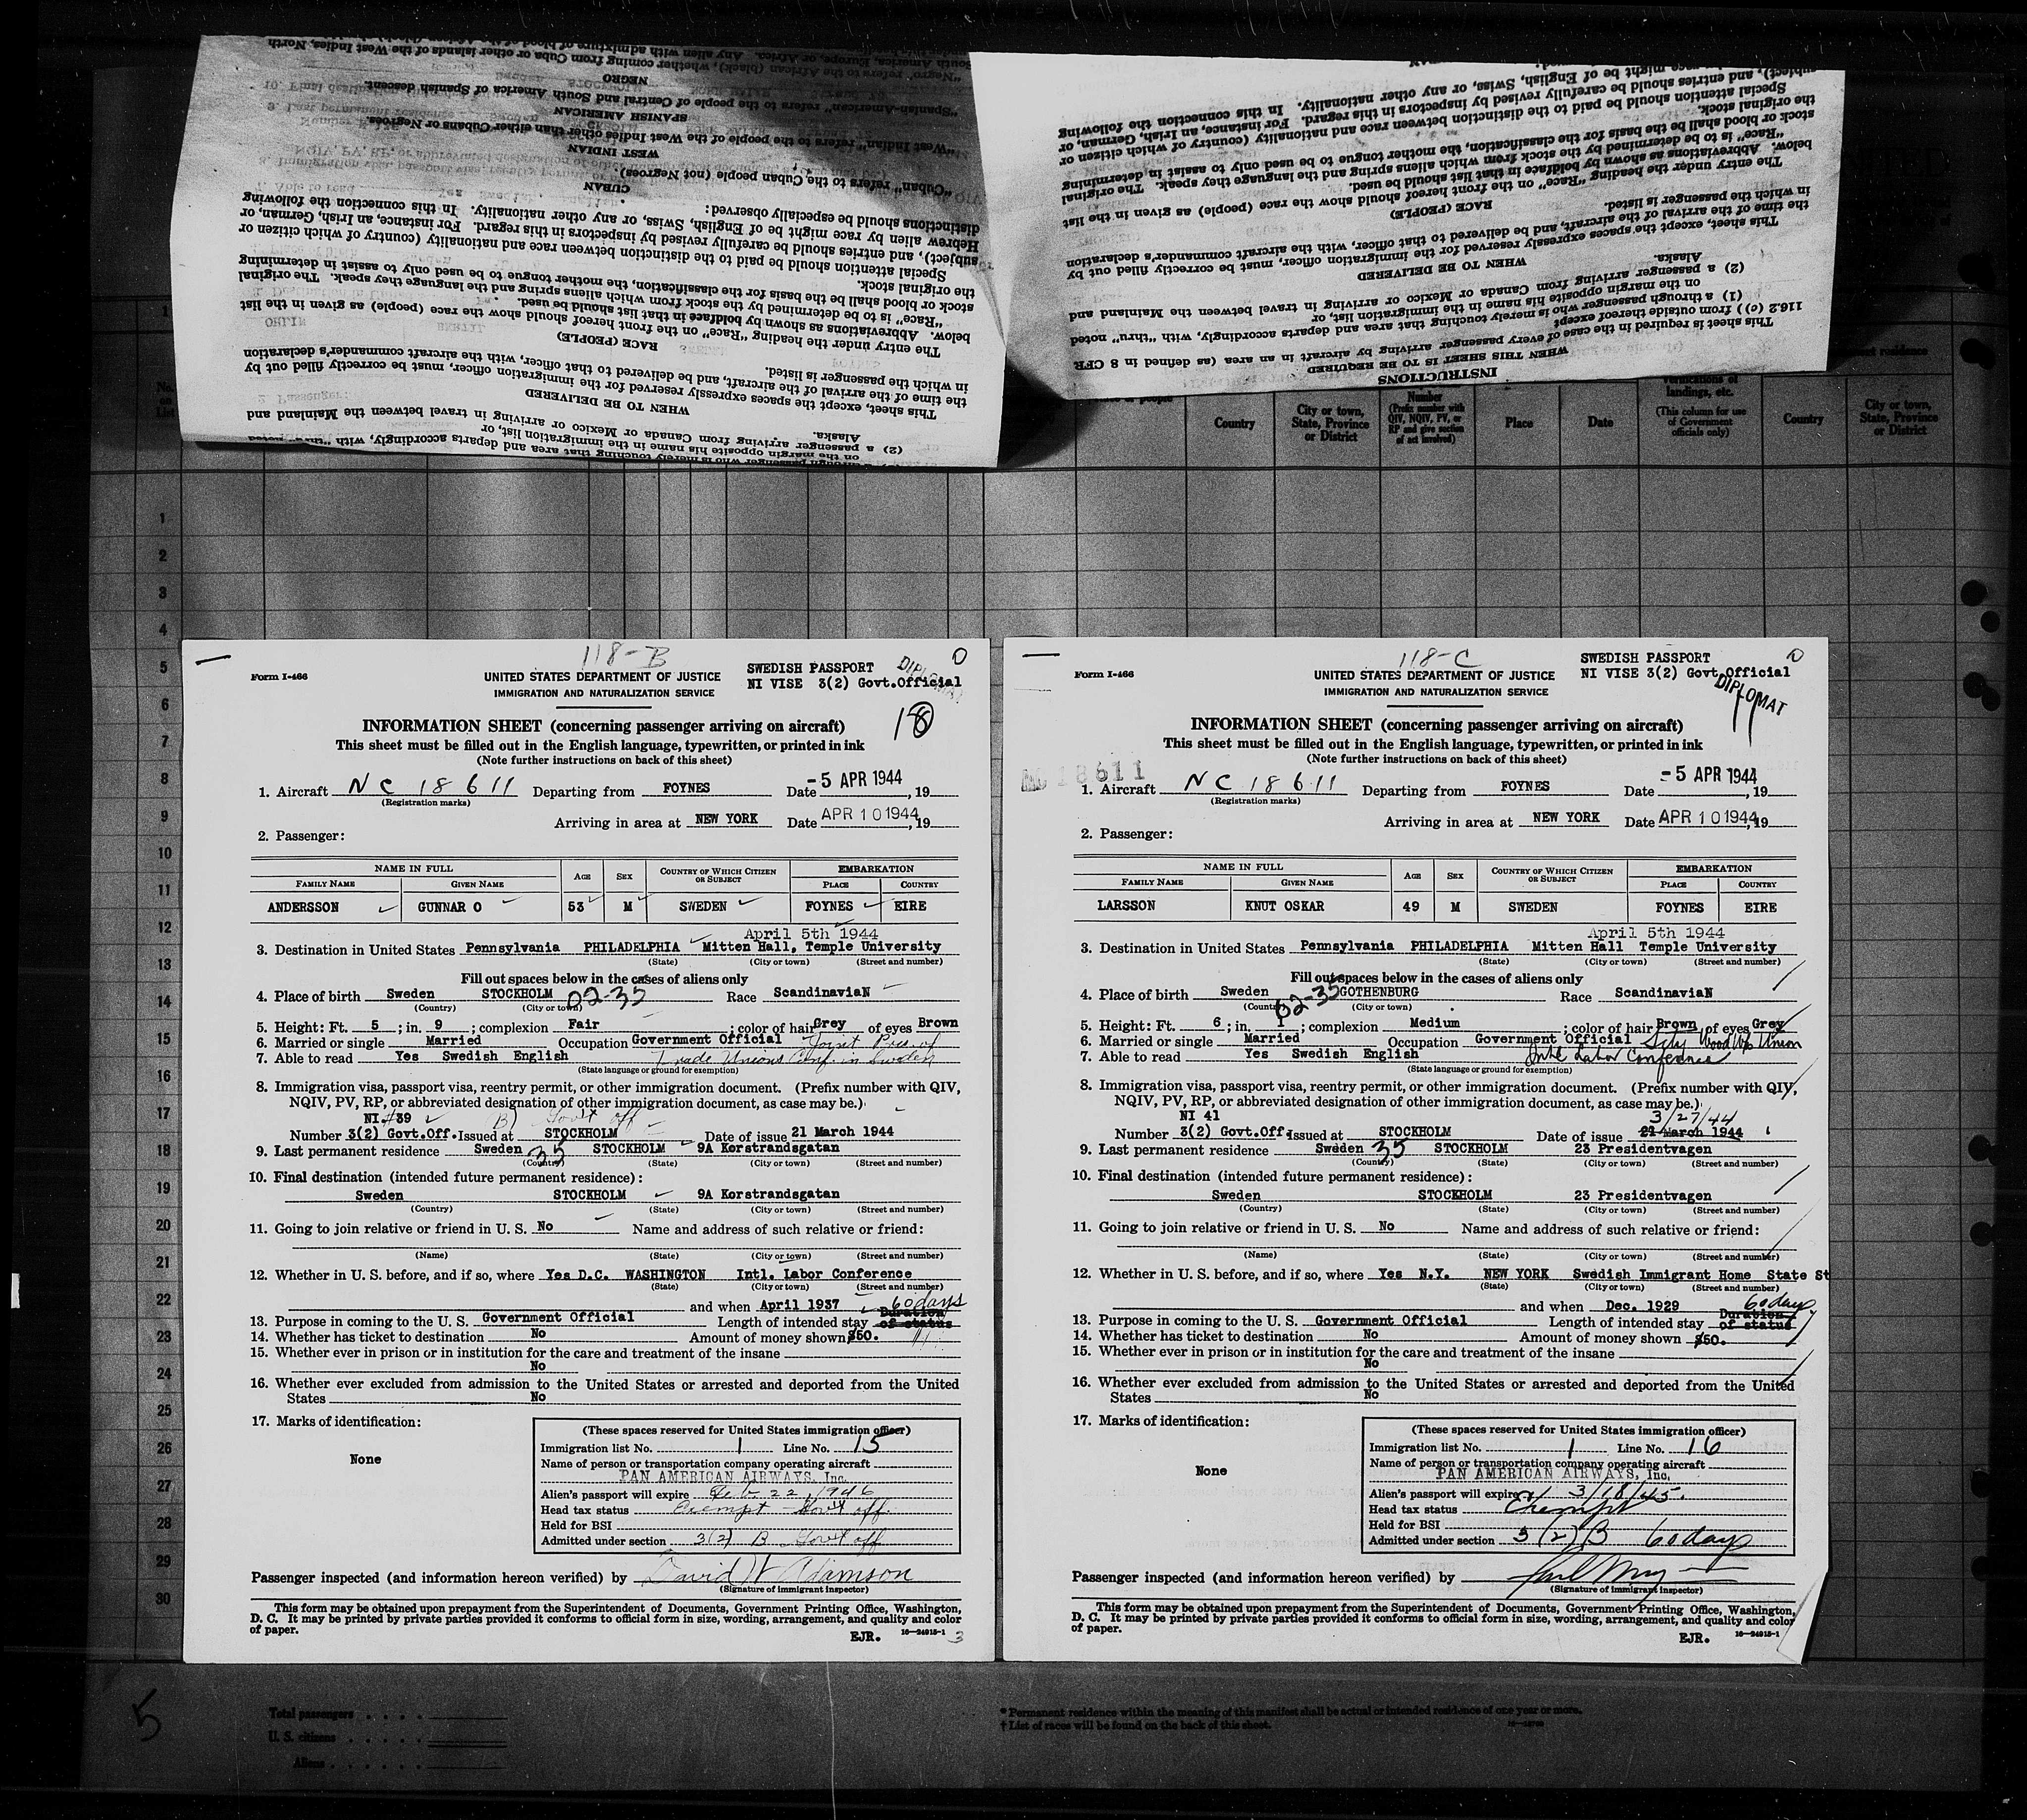 South America, Europe, or Africa. Any alien with admixture of blood of the African
"Negro" refers to the African (black), whether coming from Cuba or other islands of the West Indies, North
NEGRO
"Spanish-American" refers to the people of Central and South America of Spanish descent.
SPANISH AMERICAN
"West Indian" refers to the people of the West Indies other than either Cubans or Negroes.
WEST INDIAN
"Cuban" refers to the Cuban people (not Negroes).
CUBAN
distinctions should be especially observed:
Hebrew alien by race might be of English, Swiss, or any other nationality. In this connection the following
subject), and entries should be carefully revised by inspectors in this regard. For instance, an Irish, German, or
Special attention should be paid to the distinction between race and nationality (country of which citizen or
the original stock.
stock or blood shall be the basis for the classification, the mother tongue to be used only to assist in determining
"Race" is to be determined by the stock from which aliens spring and the language they speak. The original
below. Abbreviations as shown by boldface in that list should be used.
The entry under the heading "Race" on the front hereof should show the race (people) as given in the list
RACE (PEOPLE)
in which the passenger is listed.
the time of the arrival of the aircraft, and be delivered to that officer, with the aircraft commander's declaration
This sheet, except the spaces expressly reserved for the immigration officer, must be correctly filled out by
WHEN TO BE DELIVERED
Alaska.
(2) a passenger arriving from Canada or Mexico or arriving in travel between the Mainland and
on the margin opposite his name in the immigration list, or
through passenger who is merely touching that area and departs accordingly, with "thru" noted
subject), and entries should be carefully revised by inspectors in this regard. For instance, an Irish, German, or
might be of English, Swiss, or any other nationality. In this connection the following
Special attention should be paid to the distinction between race and nationality (country of which citizen or
the original stock.
stock or blood shall be the basis for the classification, the mother tongue to be used only to assist in determining
"Race" is to be determined by the stock from which aliens spring and the language they speak. The original
below. Abbreviations as shown by boldface in that list should be used.
The entry under the heading "Race" on the front hereof should show the race (people) as given in the list
RACE (PEOPLE)
in which the passenger is listed.
the time of the arrival of the aircraft, and be delivered to that officer, with the aircraft commander's declaration
This sheet, except the spaces expressly reserved for the immigration officer, must be correctly filled out by
WHEN TO BE DELIVERED
Alaska.
(2) a passenger arriving from Canada or Mexico or arriving in travel between the Mainland and
on the margin opposite his name in the immigration list, or
(1) a through passenger who is merely touching that area and departs accordingly, with "thru" noted
116.2 (c)) from outside thereof except
This sheet is required in the case of every passenger arriving by aircraft in an area (as defined in 8 CFR
WHEN THIS SHEET IS TO BE REQUIRED
INSTRUCTIONS
Country
City or town, State, Province or District
Number
(Prefix number with QIV, NQIV, PV, or RP and give section of act involved)
Place
Date
Verifications of landings, etc.
(This column for use of Government officials only)
Country
City or town, State, Province or District
1
2
3
4
5
6
7
8
9
10
11
12
13
14
15
16
17
18
19
20
21
22
23
24
25
26
27
28
29
30
118-B
Form I-466
UNITED STATES DEPARTMENT OF JUSTICE
IMMIGRATION AND NATURALIZATION SERVICE
SWEDISH PASSPORT
NI VISE 3(2) Govt.Official
DIPLOMAT
18
INFORMATION SHEET (concerning passenger arriving on aircraft)
This sheet must be filled out in the English language, typewritten, or printed in ink
(Note further instructions on back of this sheet)
1. Aircraft NC 18611 Departing from FOYNES Date -5 APR 1944, 19
(Registration marks)
Arriving in area at NEW YORK Date APR 10 1944, 19
2. Passenger:
NAME IN FULL AGE SEX COUNTRY OF WHICH CITIZEN OR SUBJECT EMBARKATION
FAMILY NAME GIVEN NAME PLACE COUNTRY
ANDERSSON GUNNAR O 53 M SWEDEN FOYNES EIRE
April 5th 1944
3. Destination in United States Pennsylvania PHILADELPHIA Mitten Hall, Temple University
(State) (City or town) (Street and number)
Fill out spaces below in the cases of aliens only
4. Place of birth Sweden STOCKHOLM 02-35 Race ScandinaviaN
(Country) (City or town)
5. Height: Ft. 5 ; in. 9 ; complexion Fair ; color of hair Grey of eyes Brown
6. Married or single Married Occupation Government Official Joint Pres. of
7. Able to read Yes Swedish English Trade Unions Conf. in Sweden
(State language or ground for exemption)
8. Immigration visa, passport visa, reentry permit, or other immigration document. (Prefix number with QIV,
NQIV, PV, RP, or abbreviated designation of other immigration document, as case may be.)
NI #39 B) Gov't off
Number 3(2) Govt.Off. Issued at STOCKHOLM Date of issue 21 March 1944
9. Last permanent residence Sweden 35 STOCKHOLM 9A Korstrandsgatan
(Country) (State) (City or town) (Street and number)
10. Final destination (intended future permanent residence):
Sweden STOCKHOLM 9A Korstrandsgatan
(Country) (State) (City or town) (Street and number)
11. Going to join relative or friend in U. S. No Name and address of such relative or friend:
(Name) (State) (City or town) (Street and number)
12. Whether in U. S. before, and if so, where Yes D.C. WASHINGTON Intl. Labor Conference
(State) (City or town) (Street and number)
and when April 1937 60 days
13. Purpose in coming to the U. S. Government Official Length of intended stay Duration of status
14. Whether has ticket to destination No Amount of money shown $60.
15. Whether ever in prison or in institution for the care and treatment of the insane
No
16. Whether ever excluded from admission to the United States or arrested and deported from the United
States No
17. Marks of identification:
None
(These spaces reserved for United States immigration officer)
Immigration list No. 1 Line No. 15
Name of person or transportation company operating aircraft
PAN AMERICAN AIRWAYS, Inc.
Alien's passport will expire Feb 22, 1946
Head tax status Exempt - Gov't off.
Held for BSI
Admitted under section 3(2) B Gov't off
Passenger inspected (and information hereon verified) by David W Adamson
(Signature of immigrant inspector)
This form may be obtained upon prepayment from the Superintendent of Documents, Government Printing Office, Washington,
D. C. It may be printed by private parties provided it conforms to official form in size, wording, arrangement, and quality and color
of paper.
EJR. 16—24915-1
3
118-C
Form I-466
UNITED STATES DEPARTMENT OF JUSTICE
IMMIGRATION AND NATURALIZATION SERVICE
SWEDISH PASSPORT
NI VISE 3(2) Govt.Official
DIPLOMAT
INFORMATION SHEET (concerning passenger arriving on aircraft)
This sheet must be filled out in the English language, typewritten, or printed in ink
(Note further instructions on back of this sheet)
18611
1. Aircraft NC 18611 Departing from FOYNES Date -5 APR 1944, 19
(Registration marks)
Arriving in area at NEW YORK Date APR 10 1944, 19
2. Passenger:
NAME IN FULL AGE SEX COUNTRY OF WHICH CITIZEN OR SUBJECT EMBARKATION
FAMILY NAME GIVEN NAME PLACE COUNTRY
LARSSON KNUT OSKAR 49 M SWEDEN FOYNES EIRE
April 5th 1944
3. Destination in United States Pennsylvania PHILADELPHIA Mitten Hall Temple University
(State) (City or town) (Street and number)
Fill out spaces below in the cases of aliens only
4. Place of birth Sweden 02-35 GOTHENBURG Race ScandinaviaN
(Country) (City or town)
5. Height: Ft. 6 ; in. 1 ; complexion Medium ; color of hair Brown of eyes Grey
6. Married or single Married Occupation Government Official Scty Wood Wk Union
7. Able to read Yes Swedish English Intl Labor Conference
(State language or ground for exemption)
8. Immigration visa, passport visa, reentry permit, or other immigration document. (Prefix number with QIV,
NQIV, PV, RP, or abbreviated designation of other immigration document, as case may be.)
NI 41 3/27/44
Number 3(2) Govt.Off. Issued at STOCKHOLM Date of issue 21 March 1944
9. Last permanent residence Sweden 35 STOCKHOLM 23 Presidentvagen
(Country) (State) (City or town) (Street and number)
10. Final destination (intended future permanent residence):
Sweden STOCKHOLM 23 Presidentvagen
(Country) (State) (City or town) (Street and number)
11. Going to join relative or friend in U. S. No Name and address of such relative or friend:
(Name) (State) (City or town) (Street and number)
12. Whether in U. S. before, and if so, where Yes N.Y. NEW YORK Swedish Immigrant Home State St
(State) (City or town) (Street and number)
and when Dec. 1929 60 days
13. Purpose in coming to the U. S. Government Official Length of intended stay Duration of status
14. Whether has ticket to destination No Amount of money shown $60.
15. Whether ever in prison or in institution for the care and treatment of the insane
No
16. Whether ever excluded from admission to the United States or arrested and deported from the United
States No
17. Marks of identification:
None
(These spaces reserved for United States immigration officer)
Immigration list No. 1 Line No. 16
Name of person or transportation company operating aircraft
PAN AMERICAN AIRWAYS, Inc.
Alien's passport will expire 3/18/45.
Head tax status Exempt
Held for BSI
Admitted under section 3(2) B 60 days
Passenger inspected (and information hereon verified) by
(Signature of immigrant inspector)
This form may be obtained upon prepayment from the Superintendent of Documents, Government Printing Office, Washington,
D. C. It may be printed by private parties provided it conforms to official form in size, wording, arrangement, and quality and color
of paper.
EJR. 16—24915-1
5
Total passengers
U. S. citizens
Aliens
* Permanent residence within the meaning of this manifest shall be actual or intended residence of one year or more.
† List of races will be found on the back of this sheet.